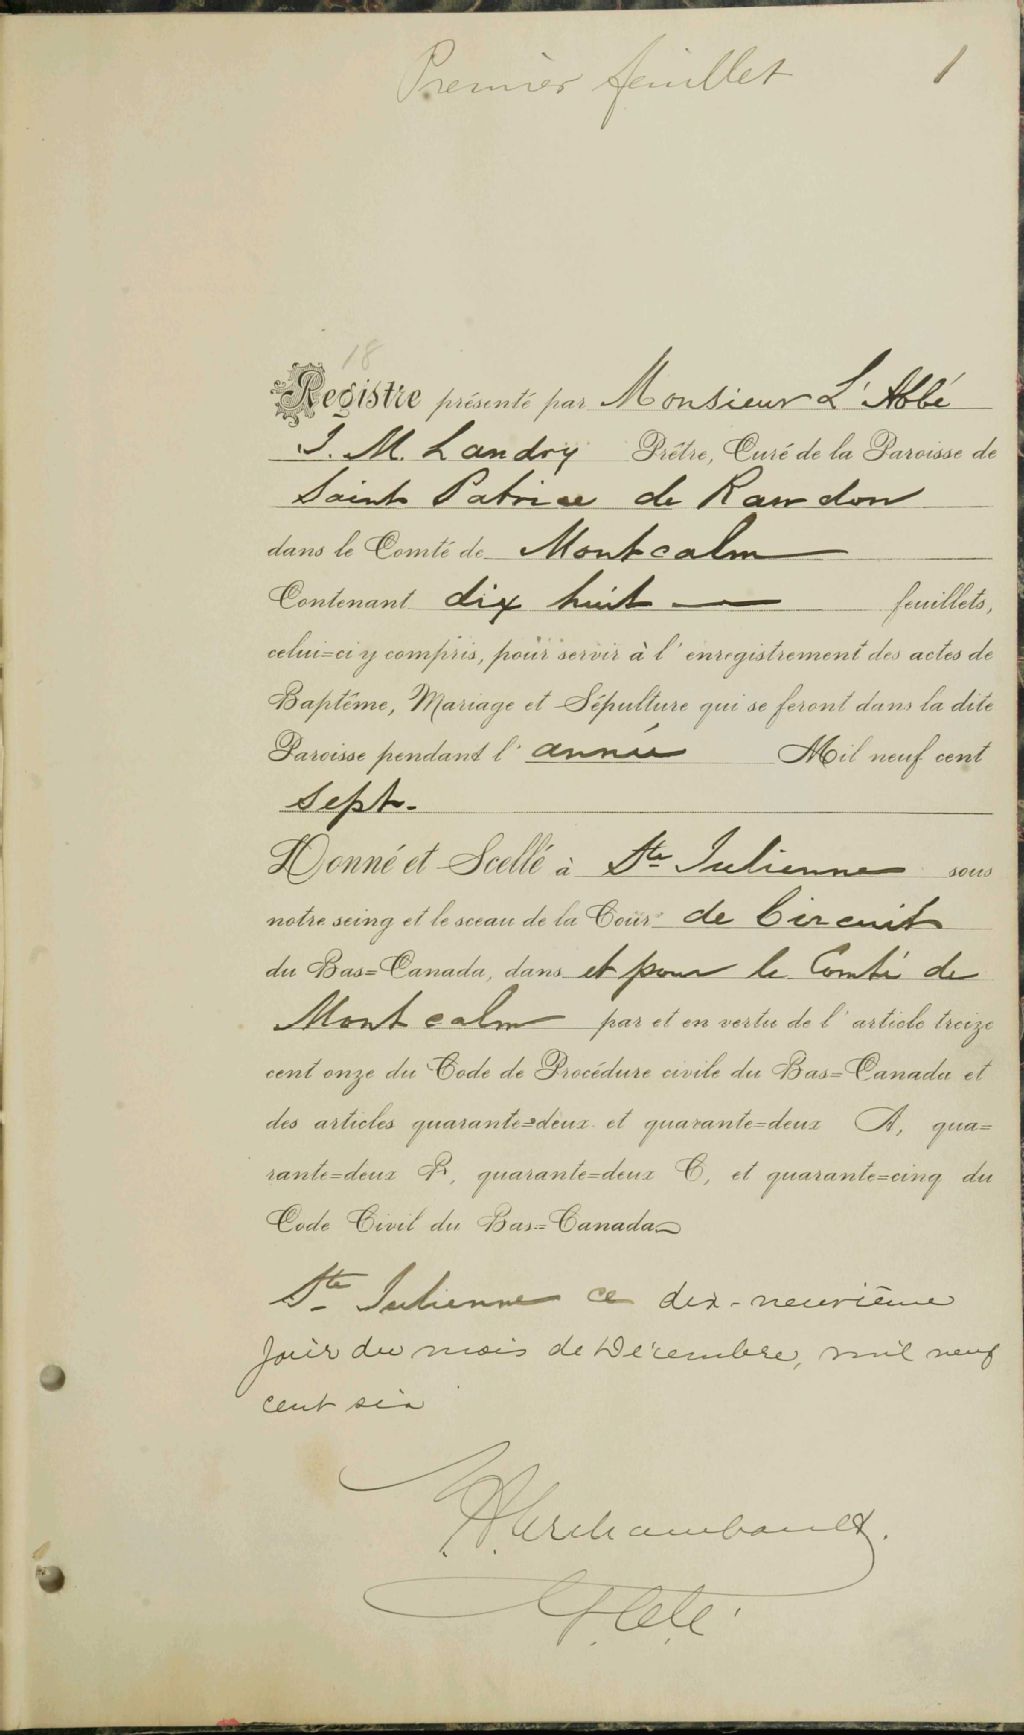 Premier feuillet 1
18
Registre présenté par Monsieur L'Abbé
J. M. Landry Prêtre, Curé de la Paroisse de
Saint Patrice de Rawdon
dans le Comté de Montcalm
Contenant dix huit feuillets,
celui=ci y compris, pour servir à l'enregistrement des actes de
Baptême, Mariage et Sépulture qui se feront dans la dite
Paroisse pendant l'année Mil neuf cent
Sept.
Donné et Scellé à Ste Julienne sous
notre seing et le sceau de la Cour de Circuit
du Bas=Canada, dans et pour le Comté de
Montcalm par et en vertu de l'article treize
cent onze du Code de Procédure civile du Bas=Canada et
des articles quarante=deux et quarante=deux A, qua=
rante=deux B, quarante=deux C, et quarante=cinq du
Code Civil du Bas=Canada
Ste Julienne ce dix-neuvième
jour du mois de Décembre, mil neuf
cent six
Archambault.